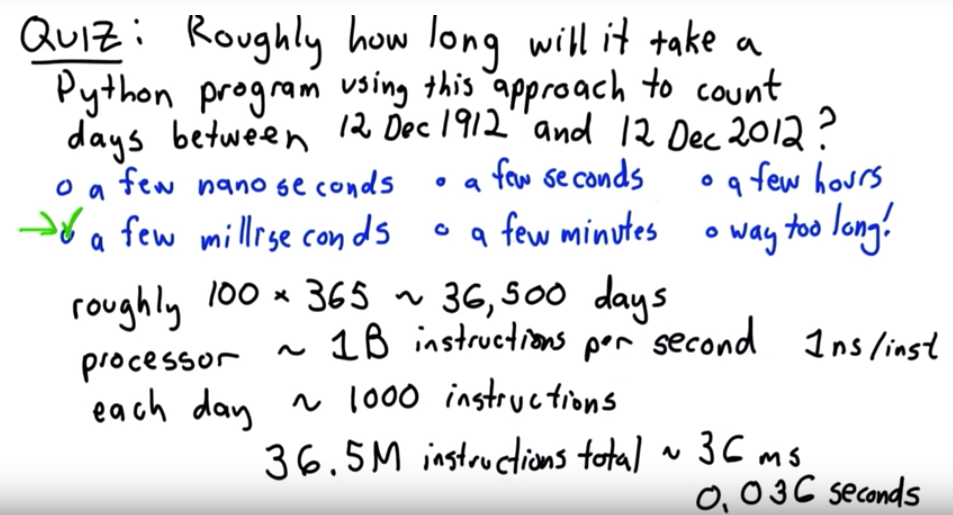 QUIZ: Roughly how long will it take a
Python program using this approach to count
days between 12 Dec 1912 and 12 Dec 2012?
o a few nanoseconds o a few seconds o a few hours
→ ✓ o a few milliseconds o a few minutes o way too long!
roughly 100 × 365 ~ 36,500 days
processor ~ 1B instructions per second 1ns/inst
each day ~ 1000 instructions
36.5M instructions total ~ 36 ms
0.036 seconds